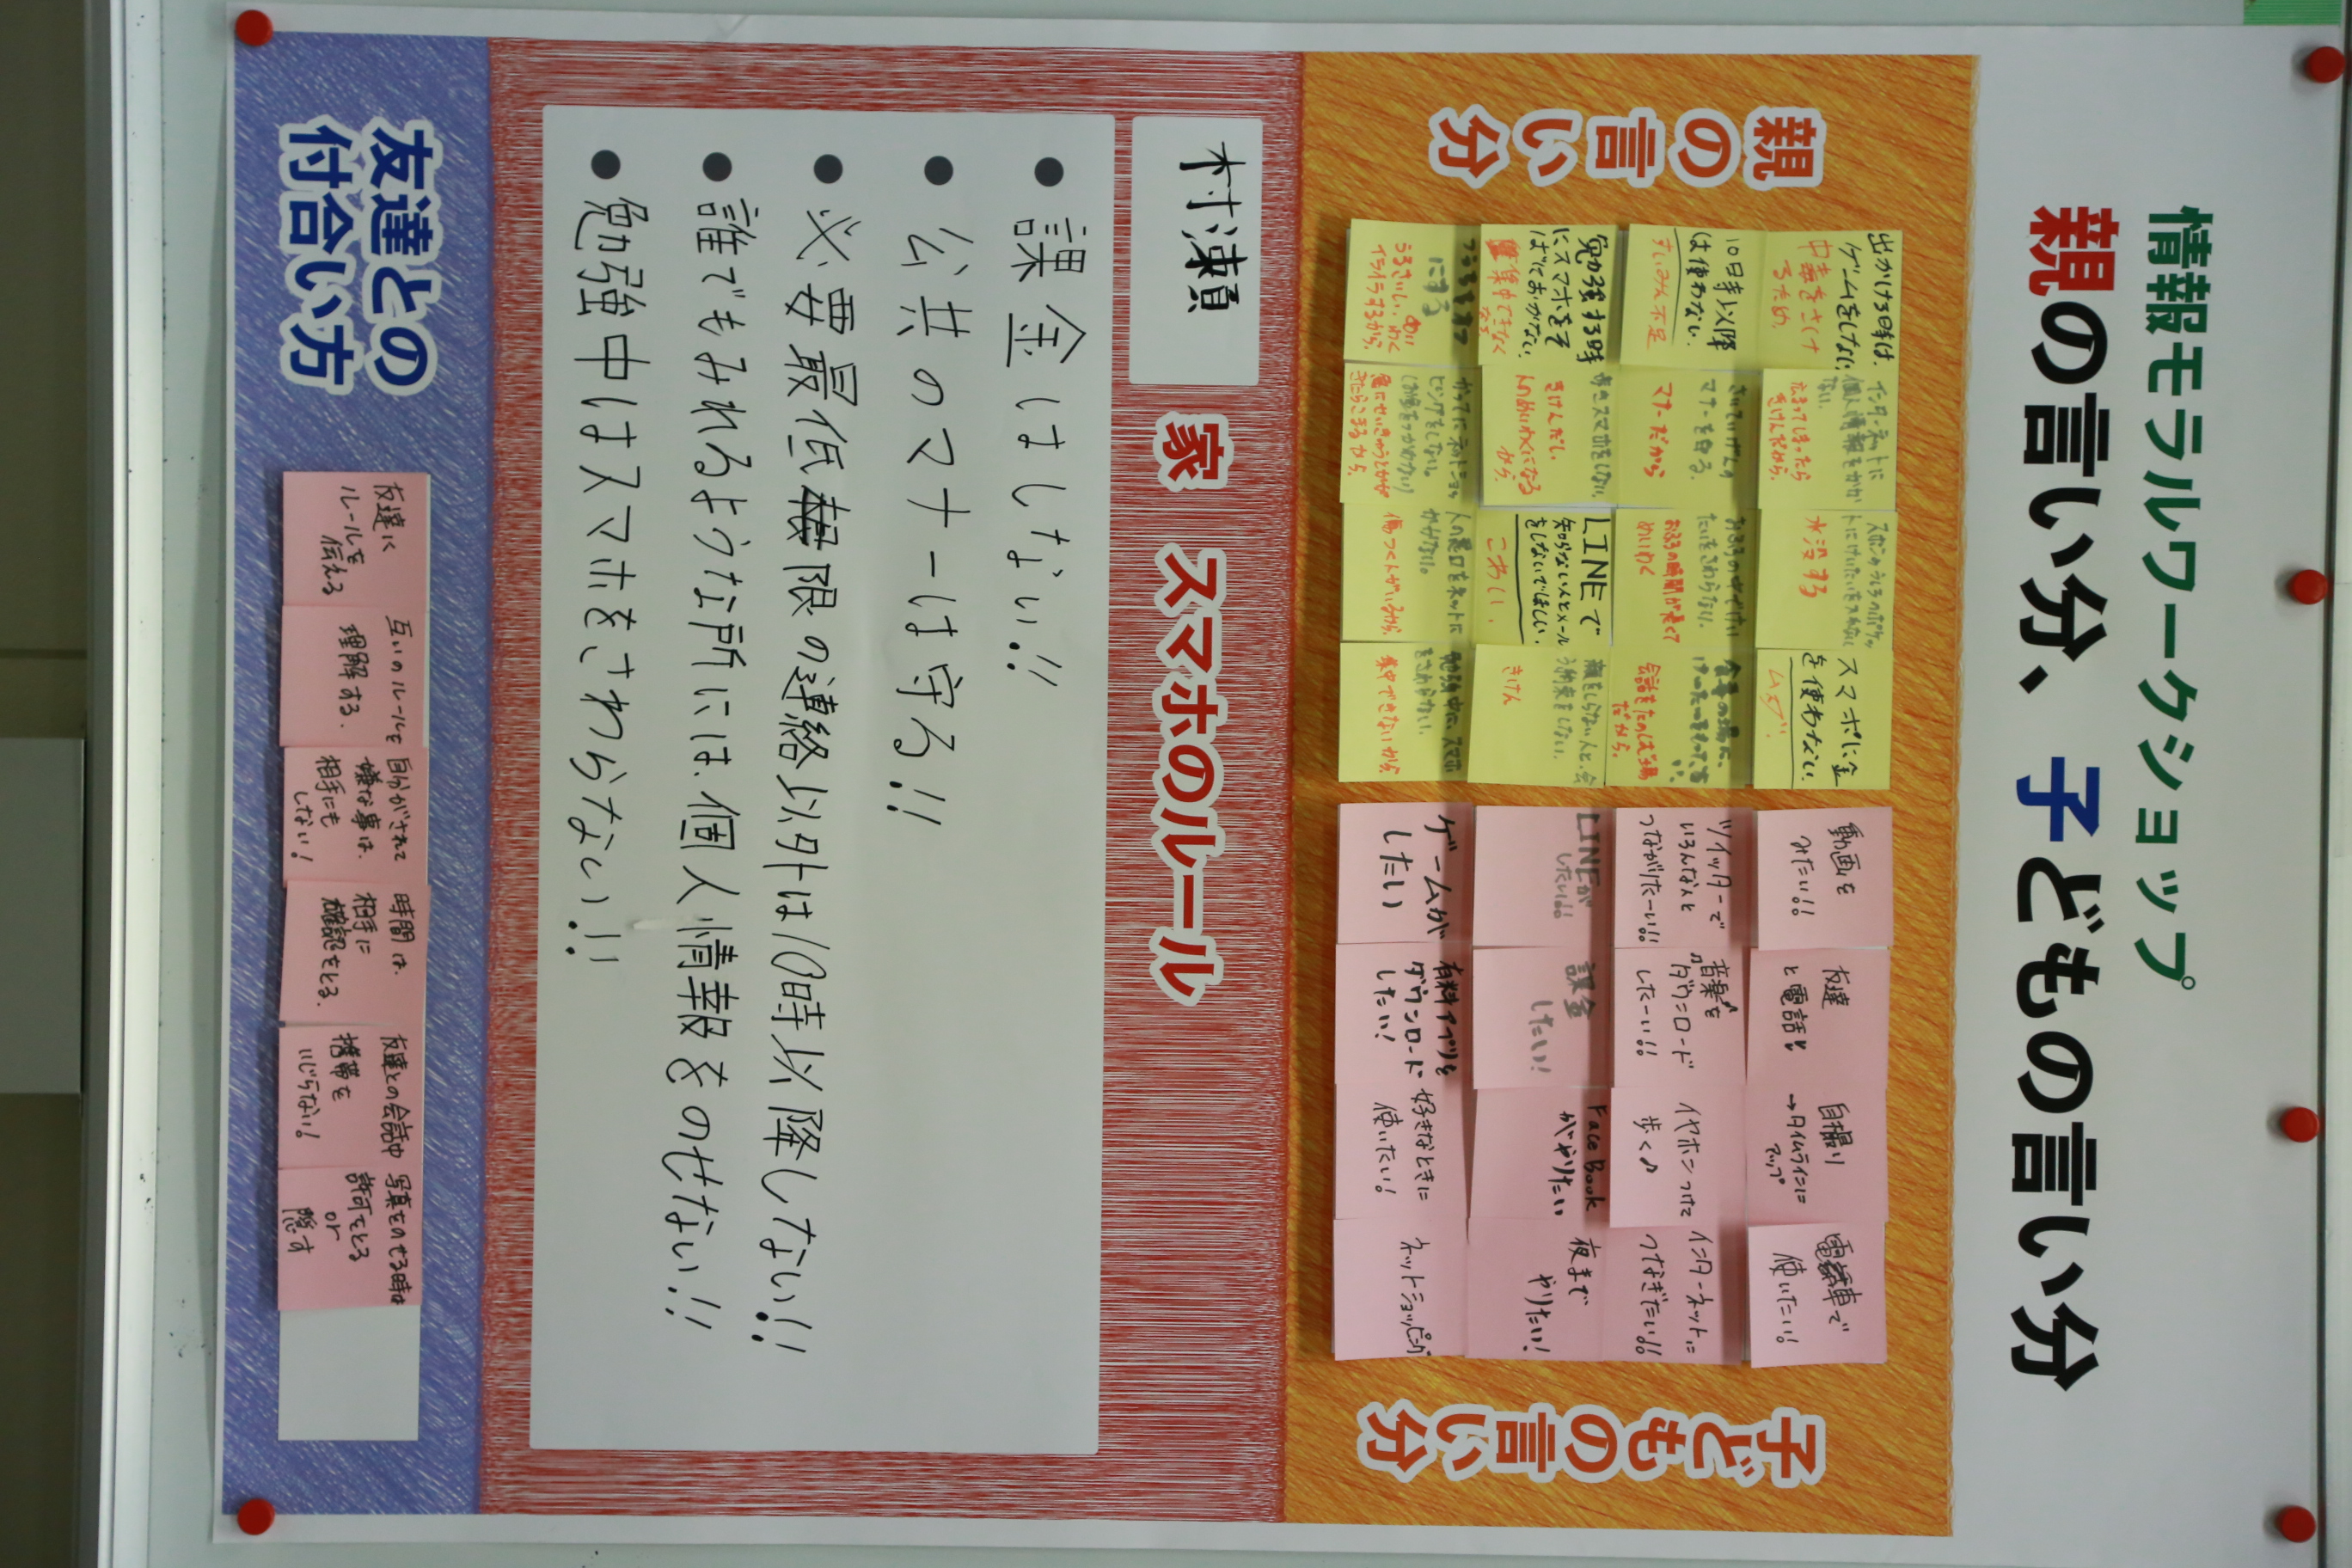 情報モラルワークショップ
親の言い分、子どもの言い分
親の言い分
出かける時は、
ゲームをしない
中毒をさけ
るため。
インターネットに
個人情報をかか
ない。
広まってしまったら
きけんだから。
トにけいたいを入れない
水没する
スマホに金
を使わない
ムダ!
10時以降
は使わない。
すいみん不足
マナーを守る。
マナーだから
おふろの中でけい
たいをさわらない。
おふろの時間が長くて
めいわく
会話をたのしむ場
だから。
勉強する時
にスマホをそ
ばにおかない。
集中できなく
なる
歩きスマホをしない。
きけんだし、
人のめいわくになる
から。
LINEで
知らない人とメール
をしないでほしい。
こわい。
顔をしらない人と、会
う約束をしない。
きけん
マナーモード
にする
うるさいし、めいわく
イライラするから。
かってにネットショッ
ピングをしない。
(お金をつかわない)
急にせいきゅうとかが
きたらこまるから。
人の悪口をネットに
かかない。
傷つく人がいるから。
勉強中に、スマホ
をさわらない。
集中できないから。
子どもの言い分
動画を
みたい!!
友達
と電話
自撮り
→タイムラインに
アップ
電車で
使いたい!
ツイッターで
いろんな人と
つながりたーい!!
音楽を
ダウンロード
したーい!!
イヤホンつけて
歩く♪
インターネットに
つなぎたい!!
LINEが
したい!!
課金
したい!
FaceBook
がやりたい
夜まで
やりたい!
ゲームが
したい
有料アプリを
ダウンロード
したい!
好きなときに
使いたい!
ネットショッピング
村瀬
家 スマホのルール
● 課金はしない!!
● 公共のマナーは守る!!
● 必要最低限の連絡以外は10時以降しない!!
● 誰でもみれるような所には、個人情報をのせない!!
● 勉強中はスマホをさわらない!!
友達との
付合い方
友達に
ルールを
伝える
互いのルールを
理解する。
自分がされて
嫌な事は、
相手にも
しない!
時間は、
相手に
確認をとる。
友達との会話中
携帯を
いじらない!
写真をのせる時は
許可をとる
or
隠す